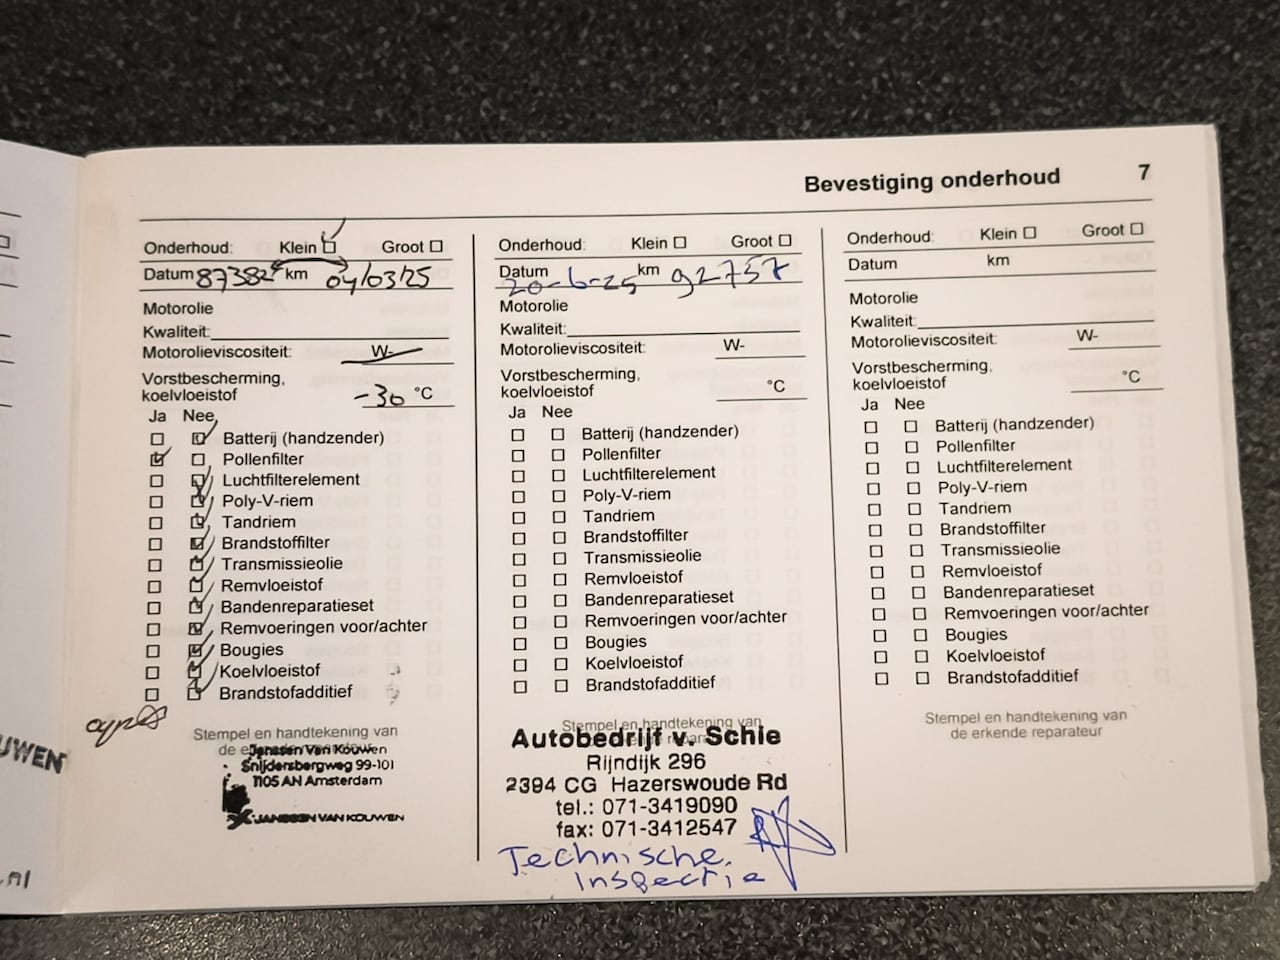 Bevestiging onderhoud 7
Onderhoud: Klein Groot
Datum 87382 km 04/03/25
Motorolie
Kwaliteit:
Motorolieviscositeit: W-
Vorstbescherming,
koelvloeistof -30 °C
Ja Nee
Batterij (handzender)
Pollenfilter
Luchtfilterelement
Poly-V-riem
Tandriem
Brandstoffilter
Transmissieolie
Remvloeistof
Bandenreparatieset
Remvoeringen voor/achter
Bougies
Koelvloeistof
Brandstofadditief
Stempel en handtekening van
de erkende reparateur
Janssen Van Kouwen
Snijdersbergweg 99-101
1105 AN Amsterdam
JANSSEN VAN KOUWEN
Onderhoud: Klein Groot
Datum 20-6-25 km 92757
Motorolie
Kwaliteit:
Motorolieviscositeit: W-
Vorstbescherming,
koelvloeistof °C
Ja Nee
Batterij (handzender)
Pollenfilter
Luchtfilterelement
Poly-V-riem
Tandriem
Brandstoffilter
Transmissieolie
Remvloeistof
Bandenreparatieset
Remvoeringen voor/achter
Bougies
Koelvloeistof
Brandstofadditief
Stempel en handtekening van
Autobedrijf v. Schie
Rijndijk 296
2394 CG Hazerswoude Rd
tel.: 071-3419090
fax: 071-3412547
Technische
Inspectie
Onderhoud: Klein Groot
Datum km
Motorolie
Kwaliteit:
Motorolieviscositeit: W-
Vorstbescherming,
koelvloeistof °C
Ja Nee
Batterij (handzender)
Pollenfilter
Luchtfilterelement
Poly-V-riem
Tandriem
Brandstoffilter
Transmissieolie
Remvloeistof
Bandenreparatieset
Remvoeringen voor/achter
Bougies
Koelvloeistof
Brandstofadditief
Stempel en handtekening van
de erkende reparateur
UWEN
.nl